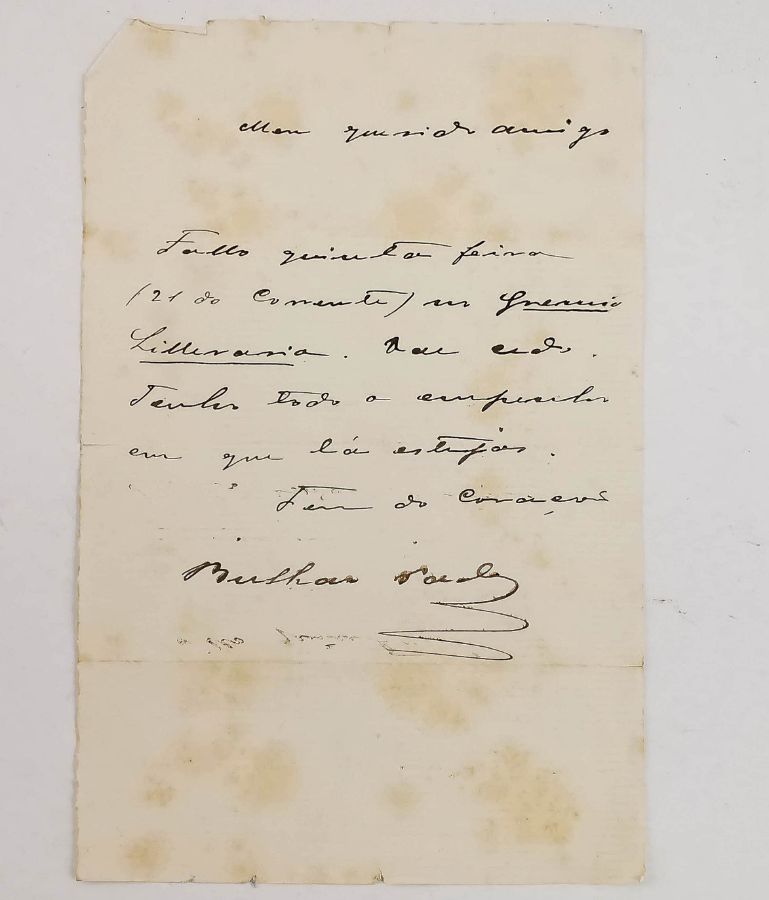 Meu querido amigo
Fallo quinta feira
(21 do Corrente) no Gremio
Litterario. Vae cedo.
Tenho todo o empenho
em que lá estejas.
Teu do Coração
Bulhão Pato